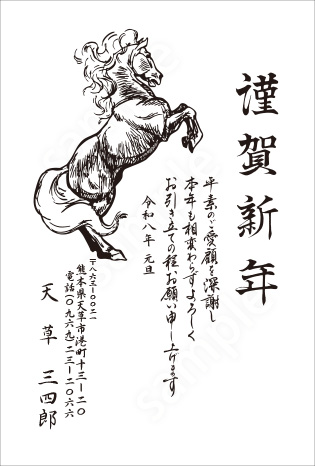 謹賀新年
平素のご愛顧を深謝し
本年も相変わらずよろしく
お引き立ての程お願い申し上げます
令和八年 元旦
〒八六三-〇〇二一
熊本県天草市港町十三-二〇
電話(〇九六九)二三-二〇六六
天草 三四郎